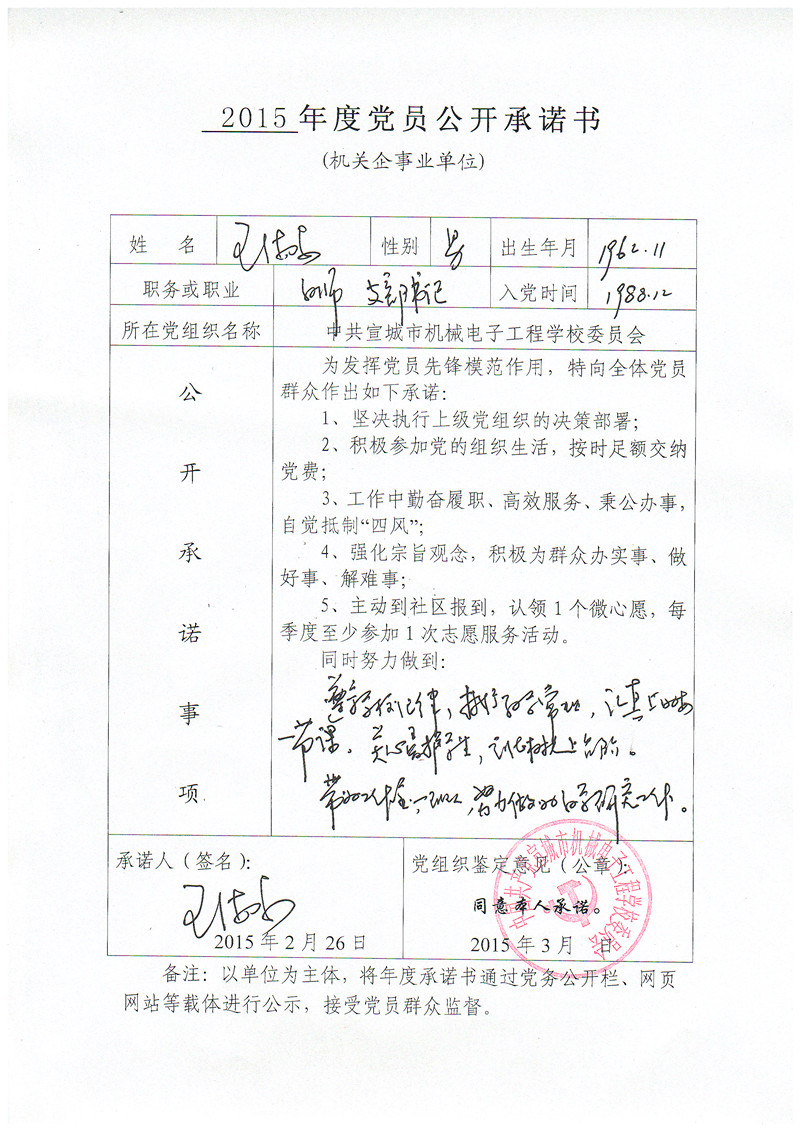 2015 年度党员公开承诺书
(机关企事业单位)
姓 名 王 性别 男 出生年月 1962.11
职务或职业 支部书记 入党时间 1988.12
所在党组织名称 中共宣城市机械电子工程学校委员会
公开承诺事项
为发挥党员先锋模范作用，特向全体党员
群众作出如下承诺：
1、坚决执行上级党组织的决策部署；
2、积极参加党的组织生活，按时足额交纳
党费；
3、工作中勤奋履职、高效服务、秉公办事，
自觉抵制“四风”；
4、强化宗旨观念，积极为群众办实事、做
好事、解难事；
5、主动到社区报到，认领 1 个微心愿，每
季度至少参加 1 次志愿服务活动。
同时努力做到：
一节课，关心 学生， 上台阶。
努力做好 研究工作。
承诺人（签名）：
王
2015 年 2 月 26 日
党组织鉴定意见（公章）：
同意本人承诺。
2015 年 3 月 日
中国共产党宣城市机械电子工程学校委员会
备注：以单位为主体，将年度承诺书通过党务公开栏、网页
网站等载体进行公示，接受党员群众监督。